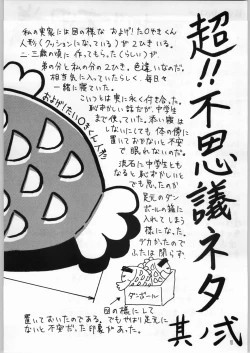 超!!不思議ネタ
其弐
私の実家には図の様な およげ!たいやきくん
人形(クッションになっている)が2ひきいる。
二・三歳の頃に作ってもらった(らしい)が
弟の分と私の分の2ひき。色違いなのだ。
相当気に入っていたらしく、毎日々
一緒に寝ていた。
こいつとは実に永く付き合った。
恥ずかしい話だが、中学生
まで使っていた。添い寝は
しないにしても 体の傍に
置いておかないと不安
で眠れないのだ。
流石に中学生とも
なると恥ずかしいと
でも思ったのか
足元のダン
ボールの箱に
入れてしまっ
た。
デカかったので
ふたは閉らず
図の様にして
置いておいたのである。でもやはり足元に
ないと不安だった印象があった。
およげ!たいやきくん人形
ダンボール